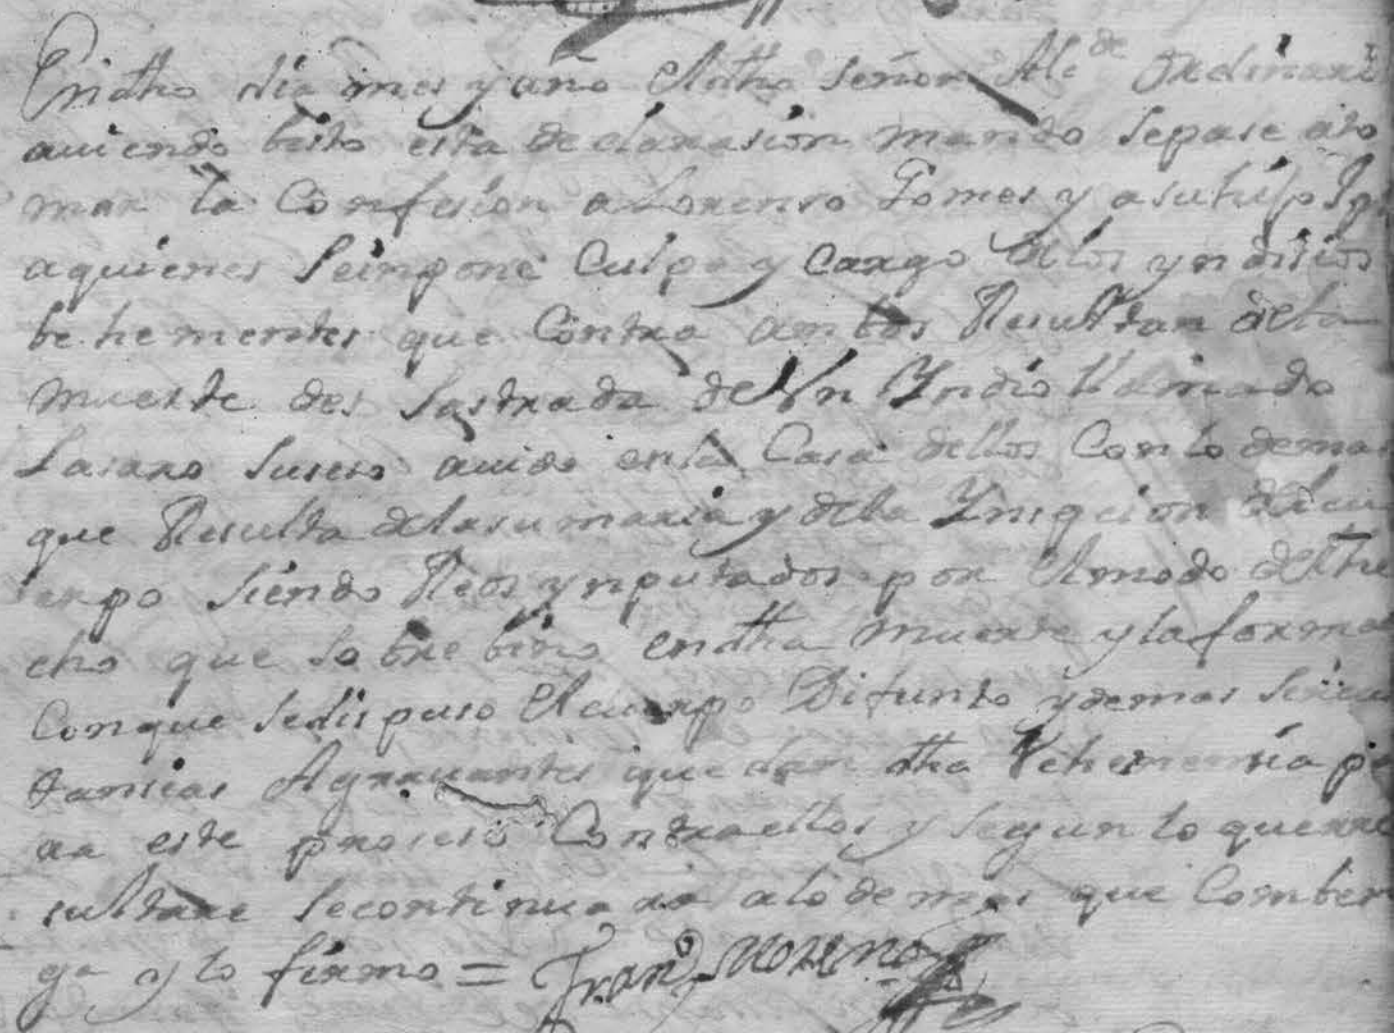 En dho dia mes y año el dho señor Alc.de ordinari
auiendo bisto esta declarasion mando se pase a to
mar la Confesion a Lorenso Gomes y a su hijo
a quienes se inpone Culpa y cargo de los yndisios
behementes que Contra ambos Resultan de la
muerte des sastrada de Un Yndio llamado
Lasaro suseso auido en la Casa dellos Con lo demas
que Resulta de la sumaria y de la del cu
erpo siendo Reos ynputados por el modo del he
cho que sobre bino en dha muerte y la forma
Con que se dispuso el cuerpo Difunto y demas sircun
tansias Agrauantes que dan dha Vehemensia pa
ra este proseso Contra ellos y segun lo que rre
sultare se continuara a lo demas que Comben
ga y lo firmo = Fran.co Moreno